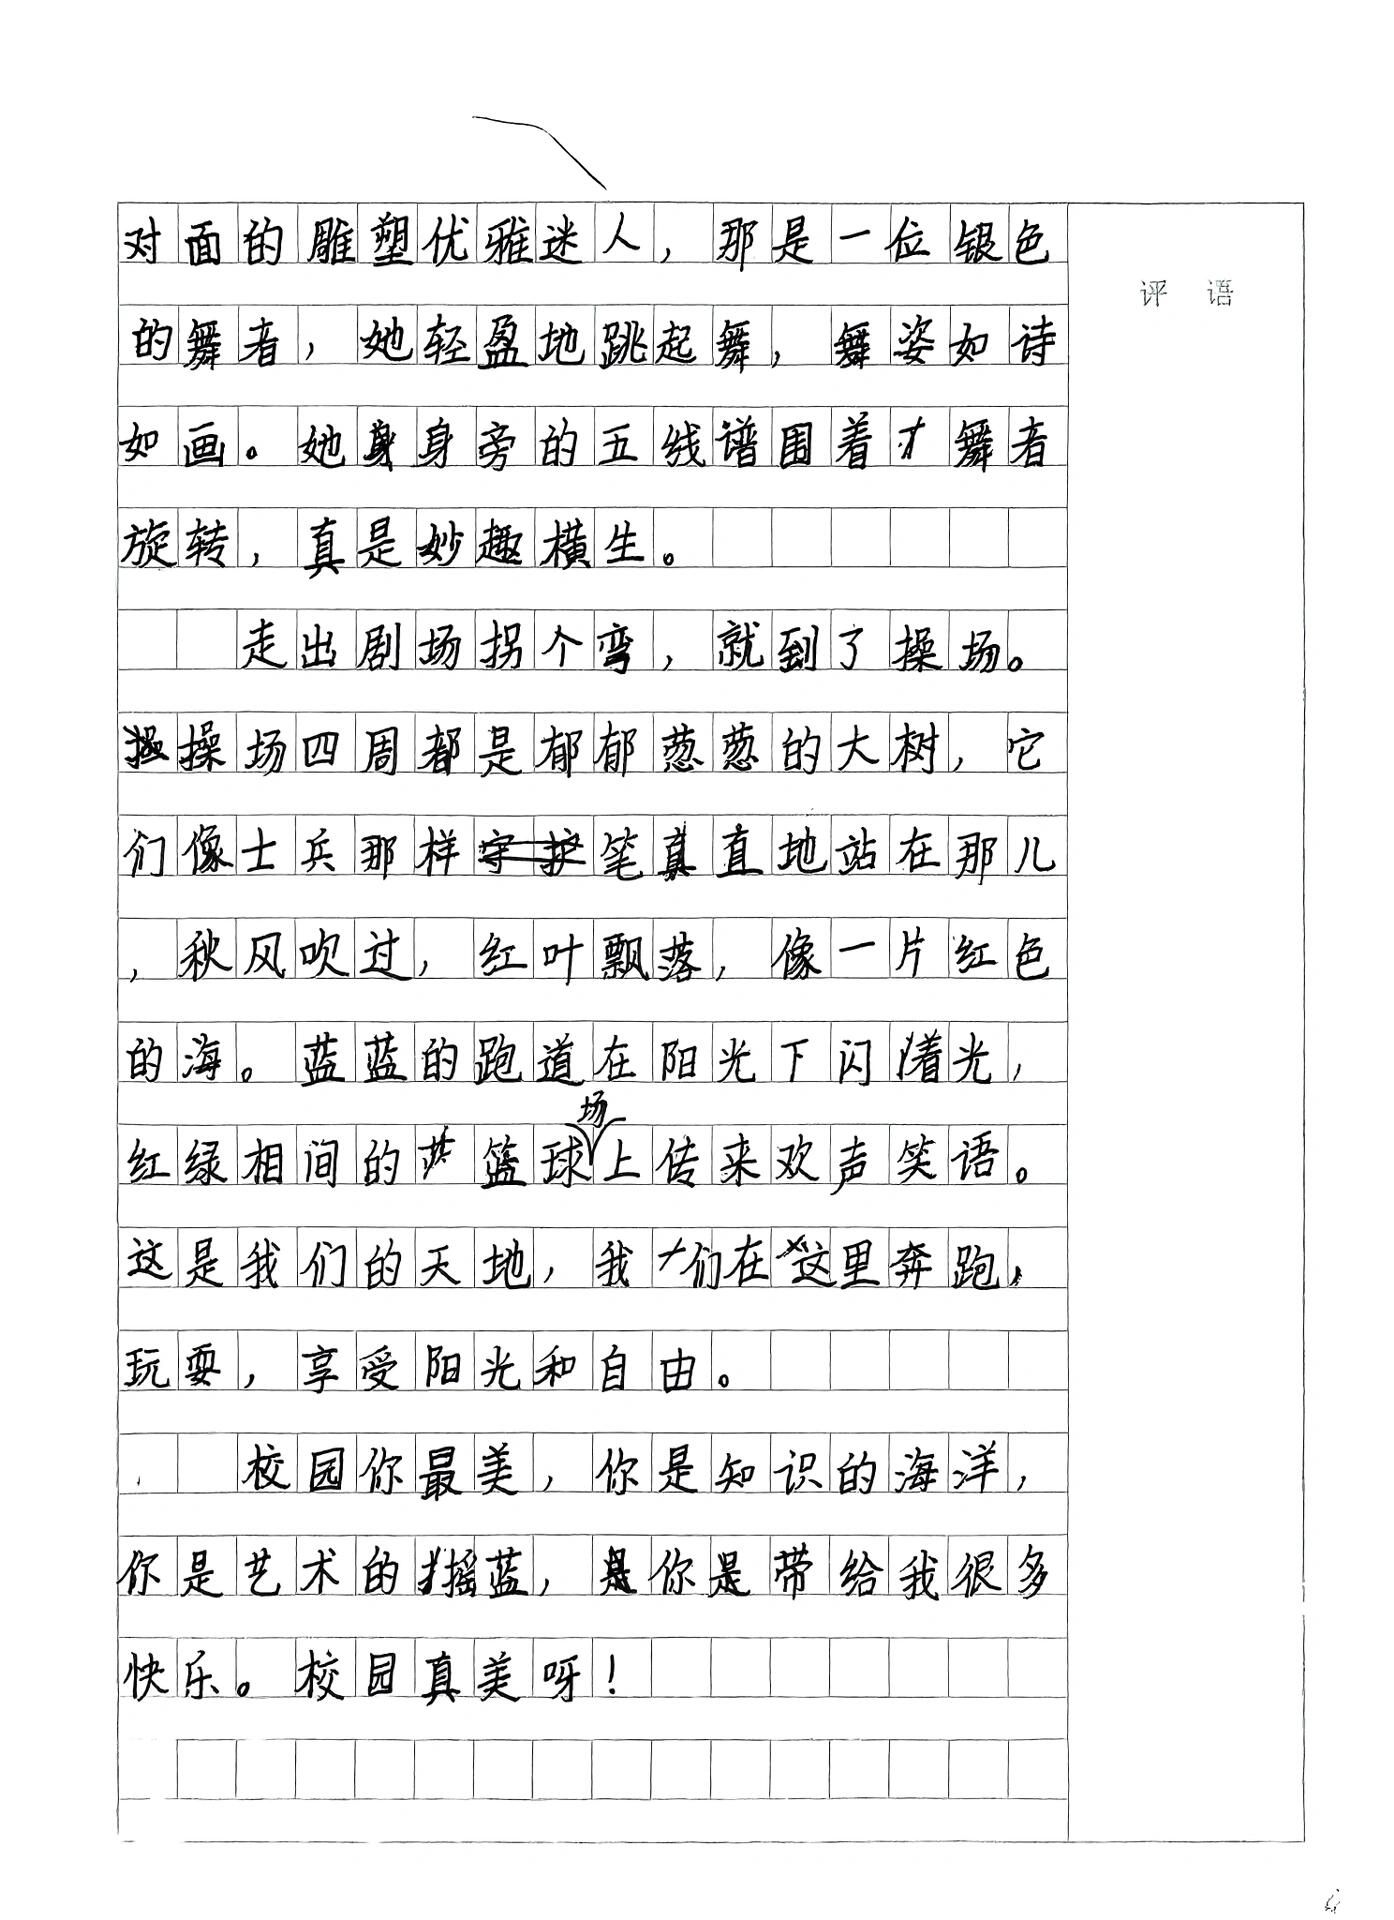 对面的雕塑优雅迷人，那是一位银色
评语
的舞者，她轻盈地跳起舞，舞姿如诗
如画。她身旁的五线谱围着舞者
旋转，真是妙趣横生。
走出剧场拐个弯，就到了操场。
操场四周都是郁郁葱葱的大树，它
们像士兵那样笔直地站在那儿
，秋风吹过，红叶飘落，像一片红色
的海。蓝蓝的跑道在阳光下闪着光，
红绿相间的篮球场上传来欢声笑语。
这是我们的天地，我们在这里奔跑，
玩耍，享受阳光和自由。
校园你最美，你是知识的海洋，
你是艺术的摇蓝，你是带给我很多
快乐。校园真美呀！